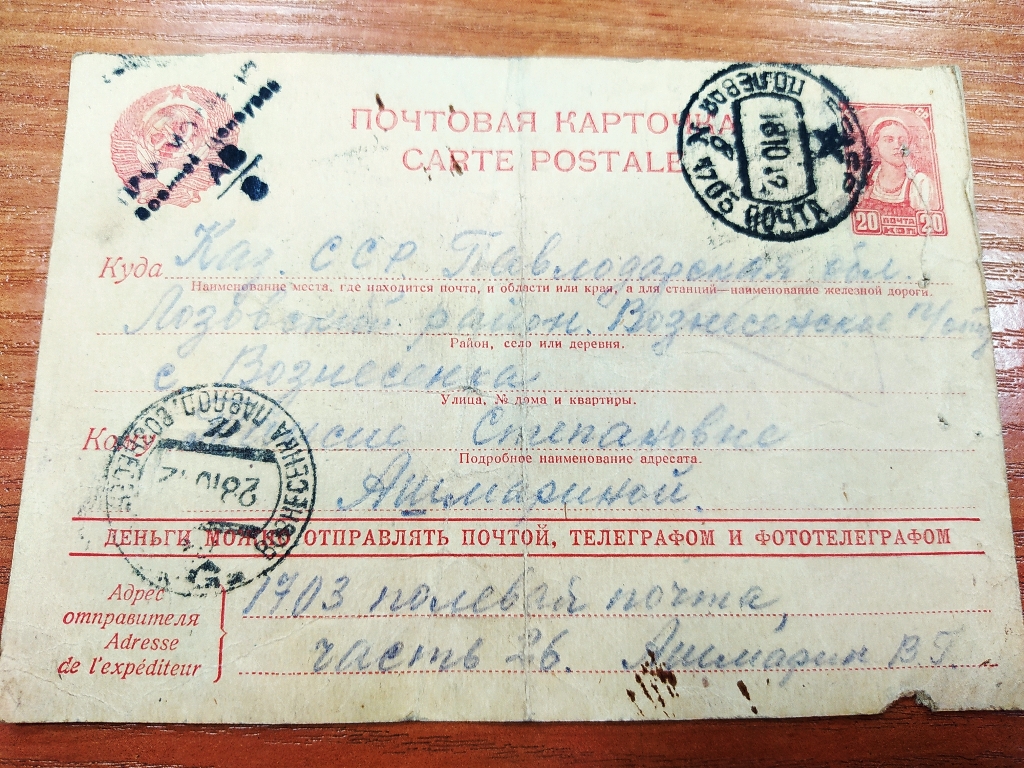 ПОЧТОВАЯ КАРТОЧКА
CARTE POSTALE
ПОЛЕВАЯ
181042
ПОЧТА
20 ПОЧТА 20
КОП
Куда Каз. ССР. Павлодарская обл.
Наименование места, где находится почта, и области или края, а для станций—наименование железной дороги.
Лозовский район. Вознесенское п/отд
Район, село или деревня.
с. Вознесенка
Улица, № дома и квартиры.
Кому Степановне
Подробное наименование адресата.
Ашмариной.
ВОЗНЕСЕНКА ПАВЛОД.
2810
ДЕНЬГИ МОЖНО ОТПРАВЛЯТЬ ПОЧТОЙ, ТЕЛЕГРАФОМ И ФОТОТЕЛЕГРАФОМ
Адрес
отправителя
Adresse
de l'expéditeur
1703 полевая почта,
часть 26. Ашмарин В Г.